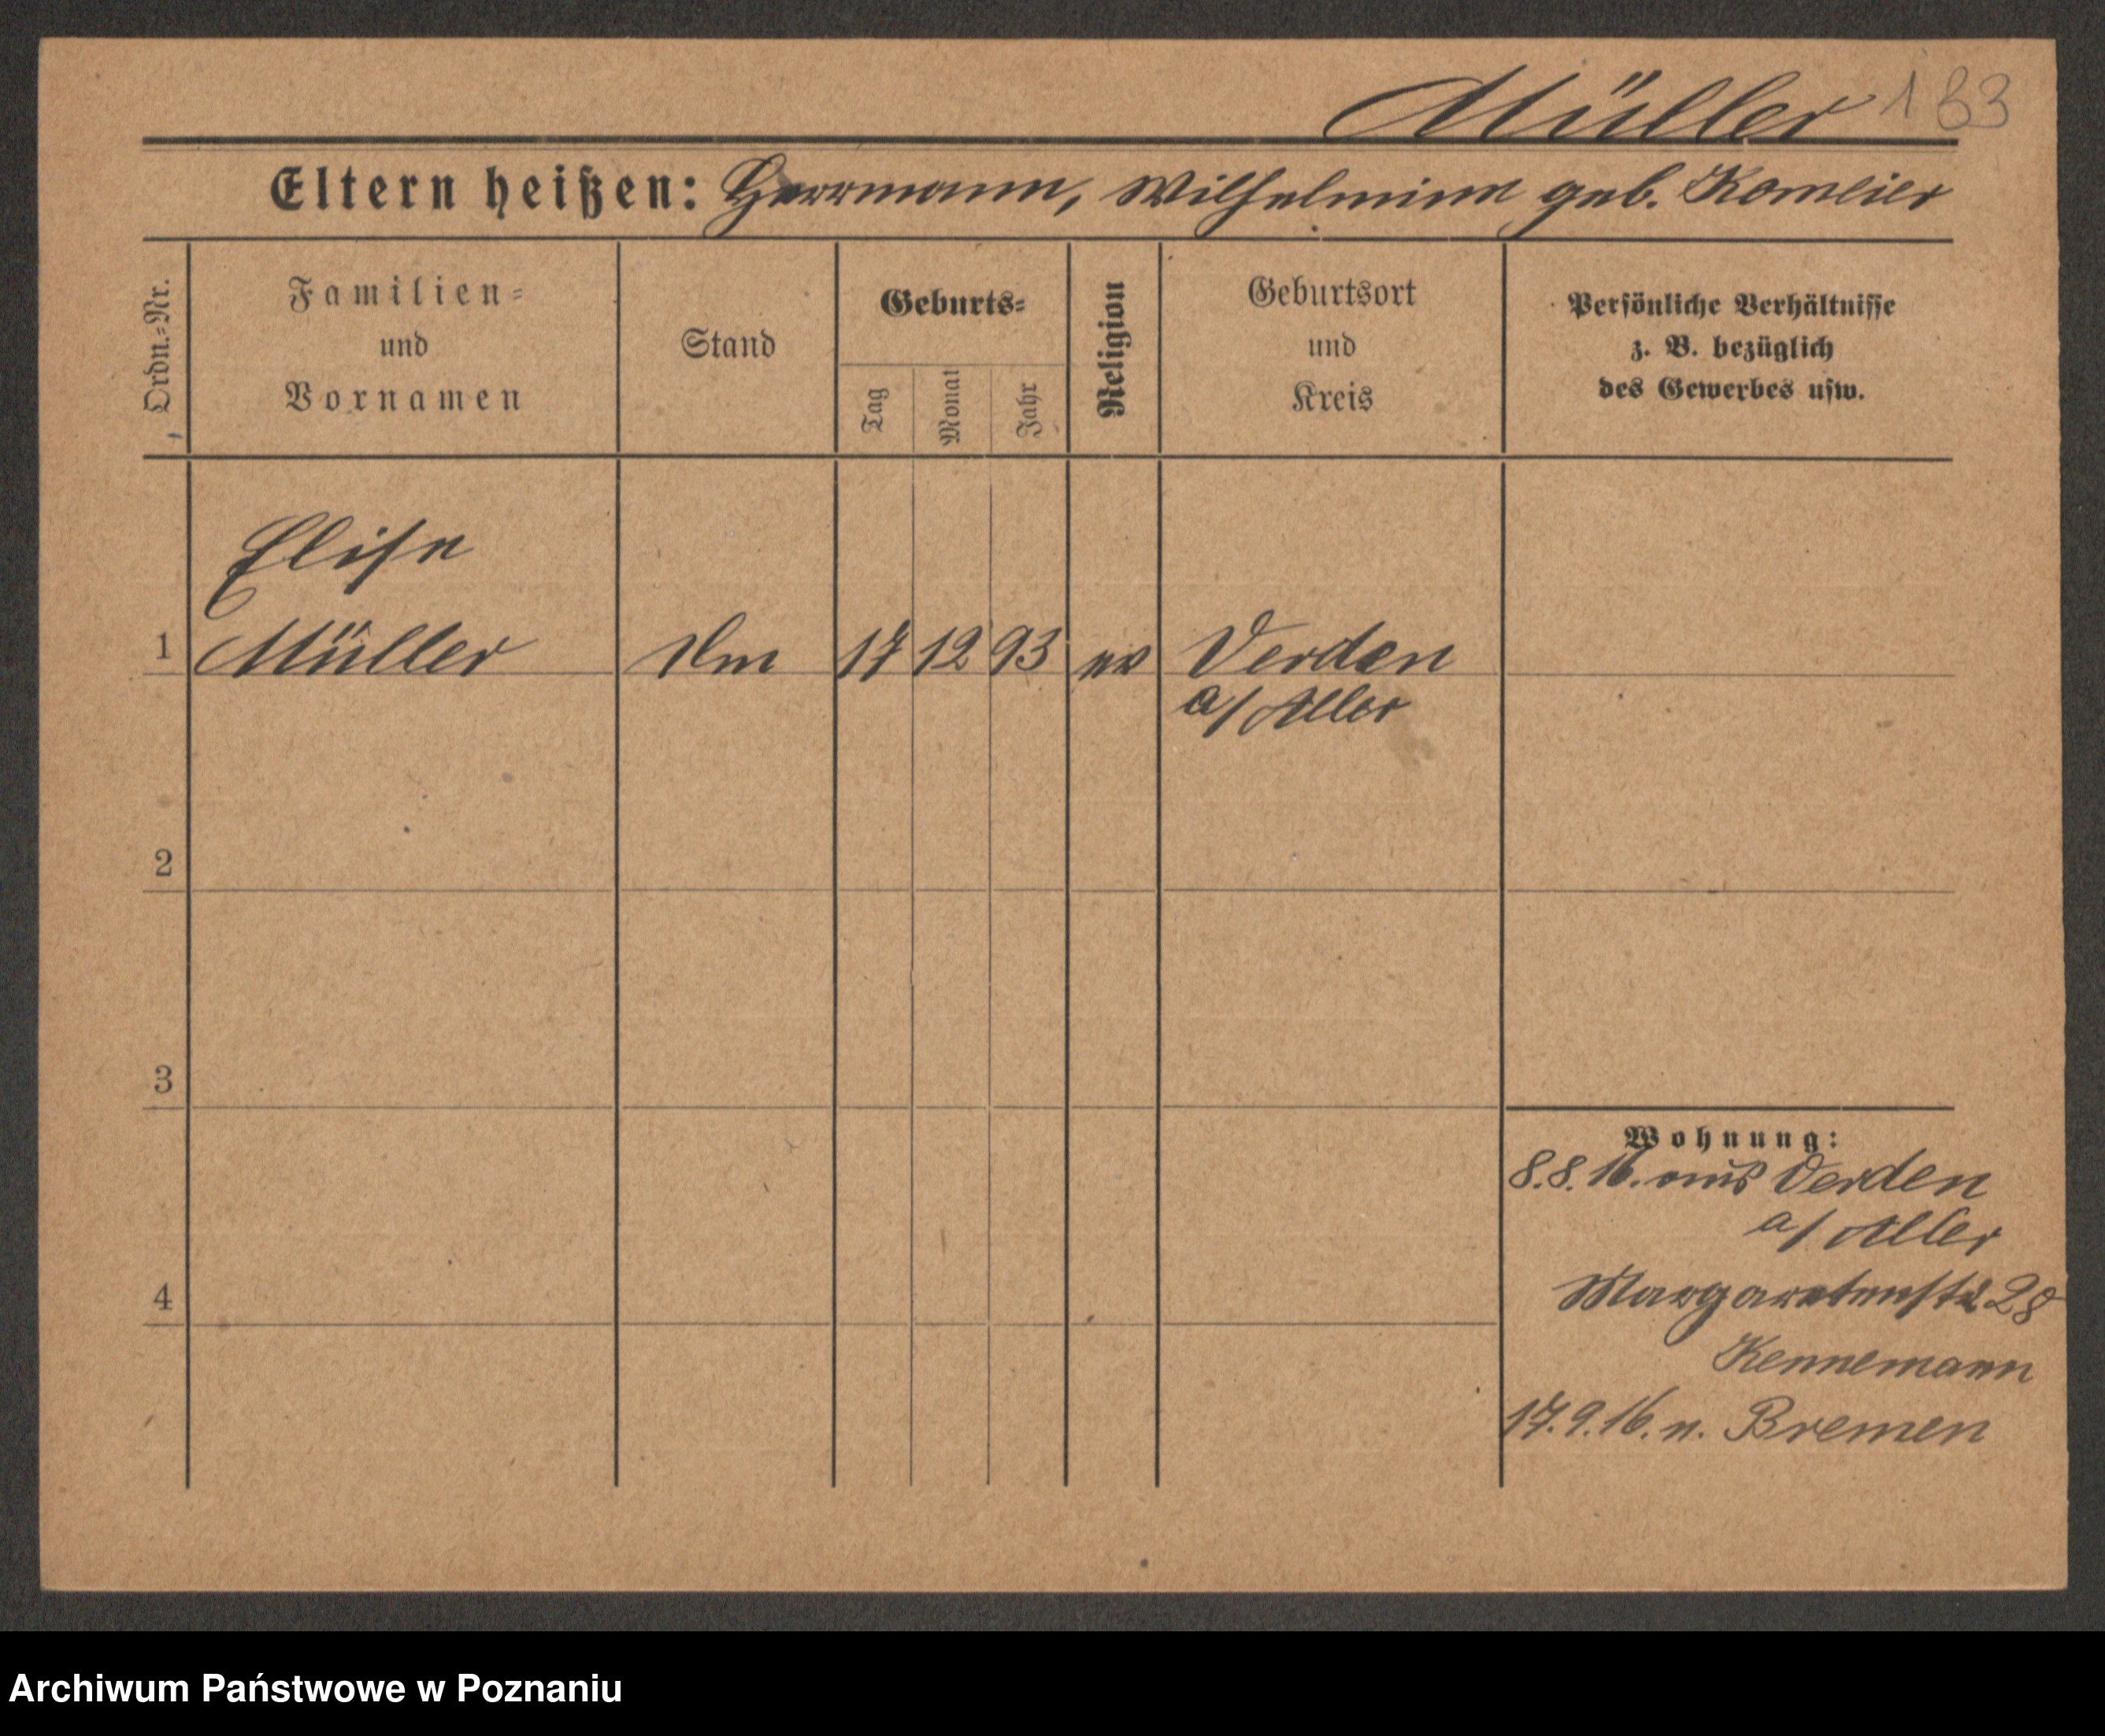 Müller 183
Eltern heißen: Herrmann, Wilhelmine geb. Komeier
Ordn.=Nr.
Familien=
und
Vornamen
Stand
Geburts=
Tag
Monat
Jahr
Religion
Geburtsort
und
Kreis
Persönliche Verhältnisse
z. B. bezüglich
des Gewerbes usw.
Elise
1 Müller 17 12 93 ev Verden
a/ Aller
2
3
4
Wohnung:
8.8.16. aus Verden
a/ Aller
Margaretenstr 28
Kennemann
17.9.16. n. Bremen
Archiwum Państwowe w Poznaniu